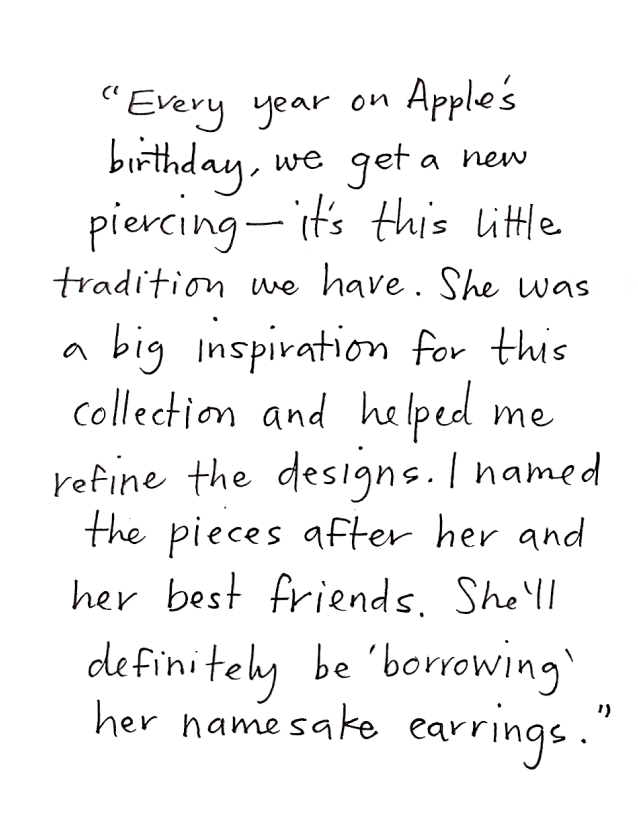 “Every year on Apple's
birthday, we get a new
piercing—it's this little
tradition we have. She was
a big inspiration for this
collection and helped me
refine the designs. I named
the pieces after her and
her best friends. She'll
definitely be 'borrowing'
her namesake earrings.”